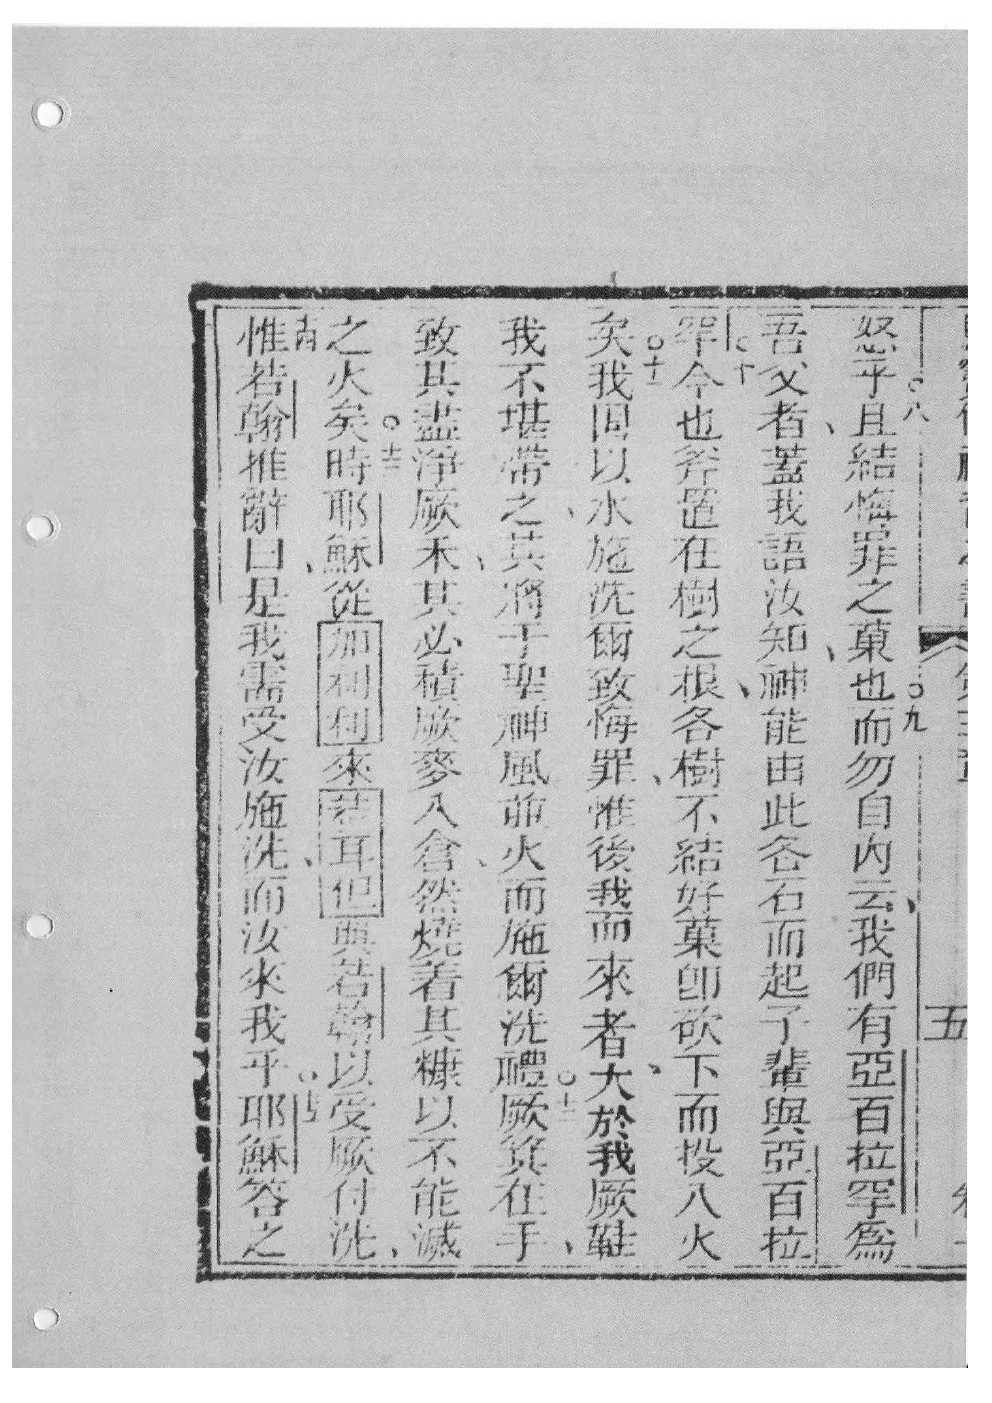 五
怒乎且結悔罪之菓也而勿自內云我們有亞百拉罕爲
吾父者蓋我語汝知神能由此各石而起子輩與亞百拉
罕今也斧置在樹之根各樹不結好菓卽砍下而投入火
矣我固以水施洗爾致悔罪惟後我而來者大於我厥鞋
我不堪帶之其將于聖神風並火而施爾洗禮厥箕在手
致其盡淨厥禾其必積厥麥入倉然燒着其糠以不能滅
之火矣時耶穌從加利利來若耳但與若翰以受厥付洗
惟若翰推辭曰是我需受汝施洗而汝來我乎耶穌答之